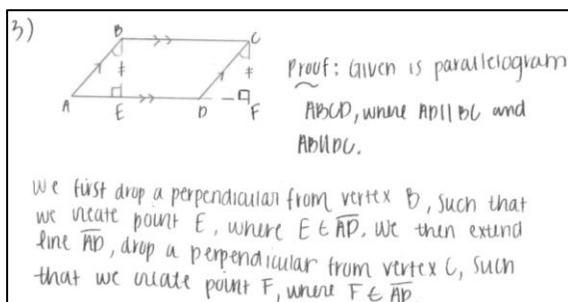 3)
B
C
A
E
D
F
Proof: Given is parallelogram
ABCD, where AD||BC and
AB||DC.
We first drop a perpendicular from vertex B, such that
we create point E, where E ∈ AD. We then extend
line AD, drop a perpendicular from vertex C, such
that we create point F, where F ∈ AD.